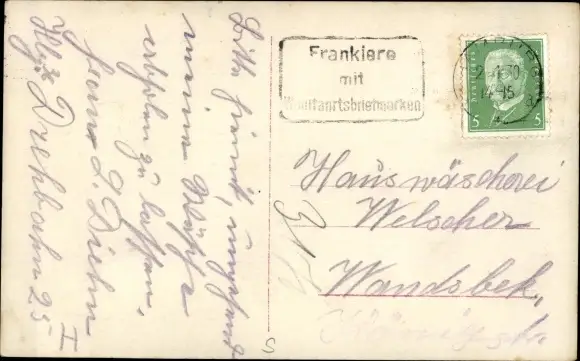 Bitte hiermit, umgehend
meine Wäsche
abholen zu lassen.
Frau L. Diehn
Hbg. Drehbahn 25
II
Frankiere
mit
Wohlfahrtsbriefmarken
2.4.30
14-15
5 5
Hauswäscherei
Welscher
Wandsbek,
S